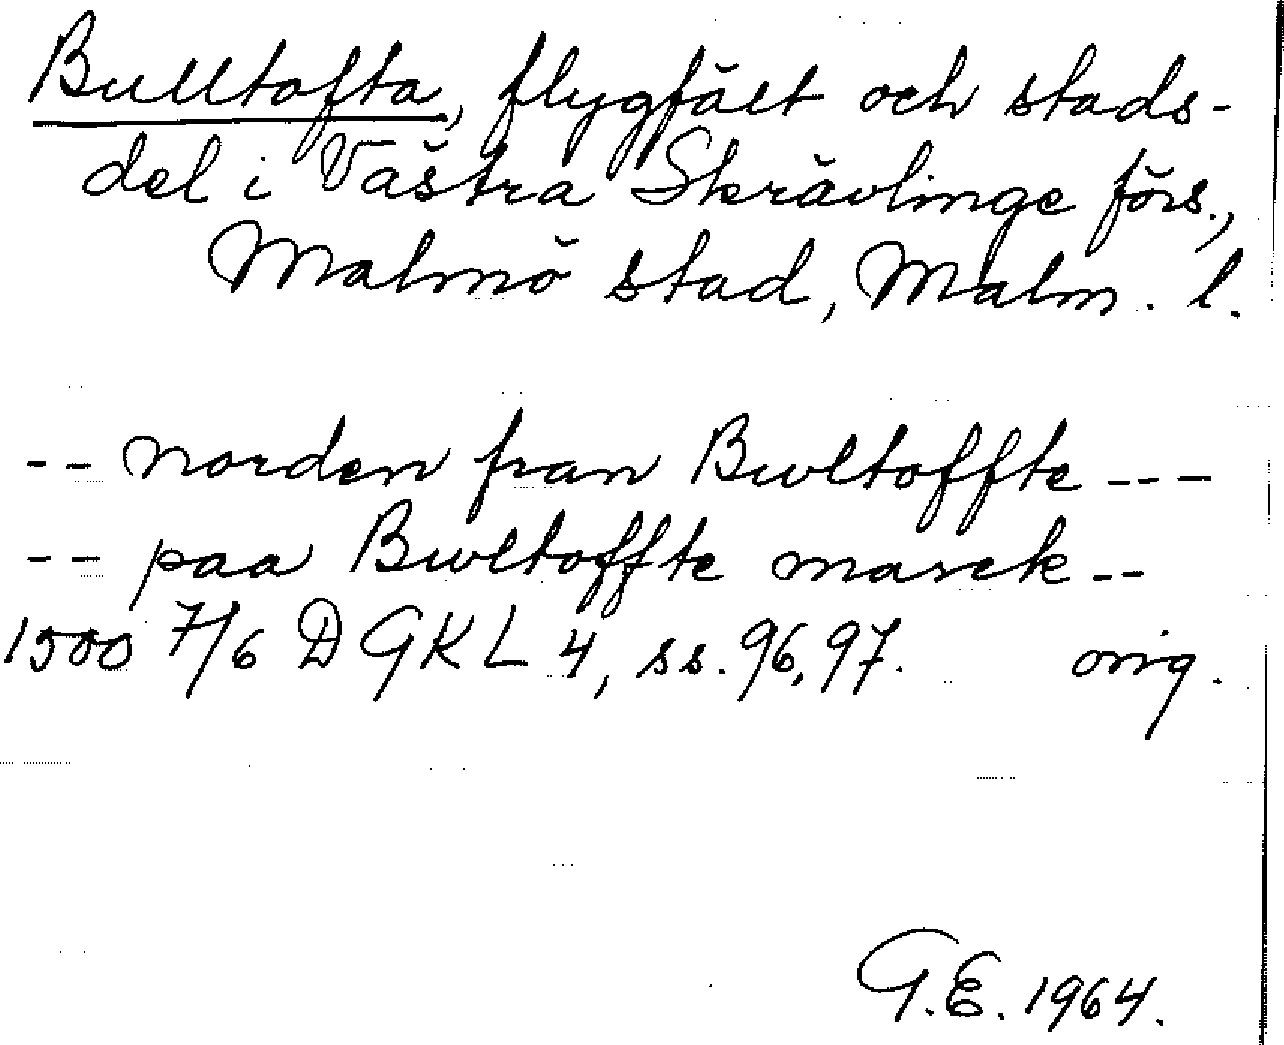 Bulltofta, flygfält och stads-
del i Västra Skrävlinge förs.,
Malmö stad, Malm. l.
-- norden fran Bwltoffte ---
-- paa Bwltoffte marck --
1500 7/6 DGKL 4, ss. 96, 97. orig.
G.E. 1964.